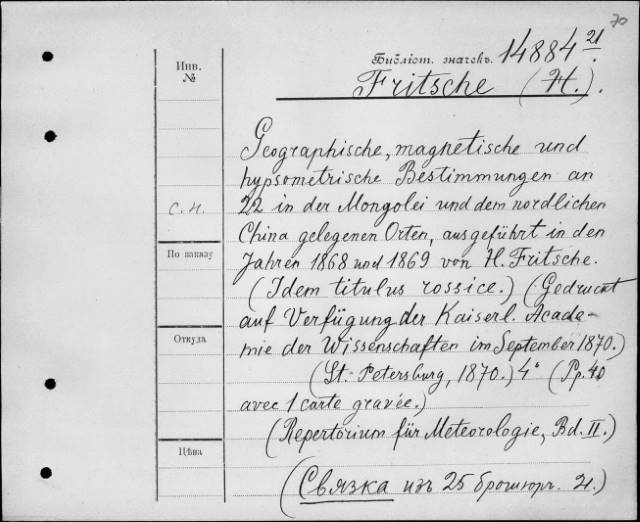 70
Библіот. значекъ. 14884 21.
Инв.
№
Fritsche (H.).
Geographische, magnetische und
hypsometrische Bestimmungen an
22 in der Mongolei und dem nordlichen
China gelegenen Orten, ausgeführt in den
Jahren 1868 und 1869 von H. Fritsche.
(Idem titulus rossice.) (Gedruckt
auf Verfügung der Kaiserl. Acade-
mie der Wissenschaften im September 1870.)
(St. Petersburg, 1870.) 4° (Pp. 40
avec 1 carte gravée.)
(Repertorium für Meteorologie, Bd. II.)
(Связка изъ 25 брошюръ. 21.)
С. н.
По заказу
Откуда
Цѣна